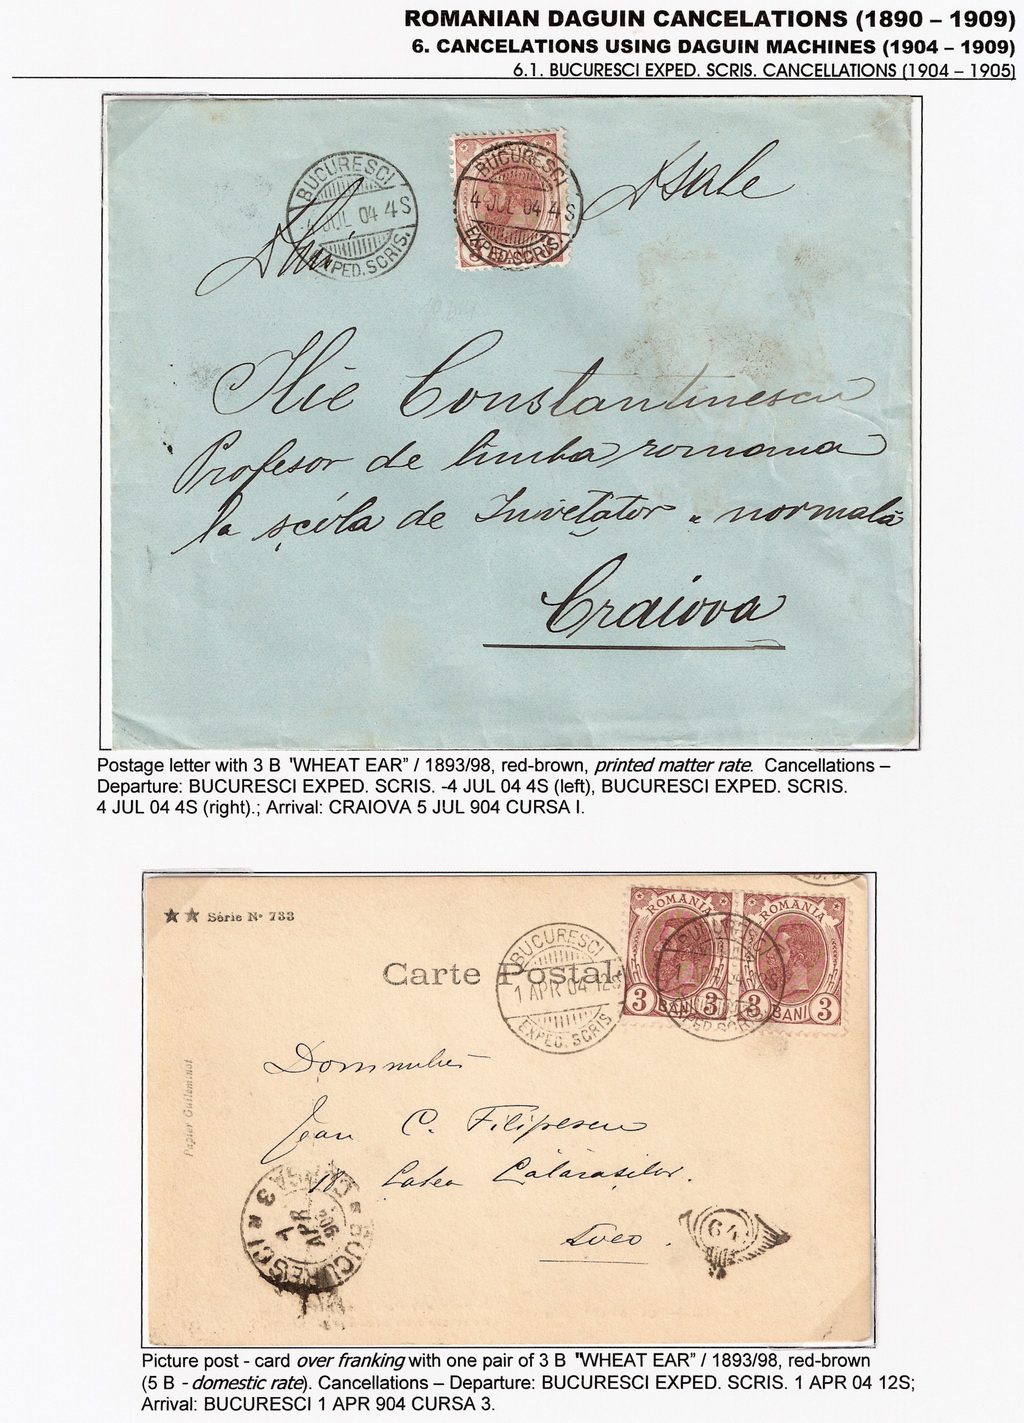 ROMANIAN DAGUIN CANCELATIONS (1890 – 1909)
6. CANCELATIONS USING DAGUIN MACHINES (1904 – 1909)
6.1. BUCURESCI EXPED. SCRIS. CANCELLATIONS (1904 – 1905)
BUCURESCI
4 JUL 04 4S
EXPED. SCRIS.
BUCURESCI
4 JUL 04 4S
EXPED. SCRIS
D sale
Ilie Constantinescu
Profesor de limba romana
la școla de Invețător. normală
Craiova
Postage letter with 3 B "WHEAT EAR" / 1893/98, red-brown, printed matter rate. Cancellations –
Departure: BUCURESCI EXPED. SCRIS. -4 JUL 04 4S (left), BUCURESCI EXPED. SCRIS.
4 JUL 04 4S (right).; Arrival: CRAIOVA 5 JUL 904 CURSA I.
★ ★ Série N° 733
Carte Postal
BUCURESCI
1 APR 04 12S
EXPED. SCRIS
ROMANIA
3 BANI 3
ROMANIA
3 BANI 3
Papier Guilleminot
Jean C. Filipescu
18 Calea Călărașilor.
Loco.
BUCURESCI
1 APR 904
CURSA 3
64
Picture post - card over franking with one pair of 3 B "WHEAT EAR" / 1893/98, red-brown
(5 B - domestic rate). Cancellations – Departure: BUCURESCI EXPED. SCRIS. 1 APR 04 12S;
Arrival: BUCURESCI 1 APR 904 CURSA 3.